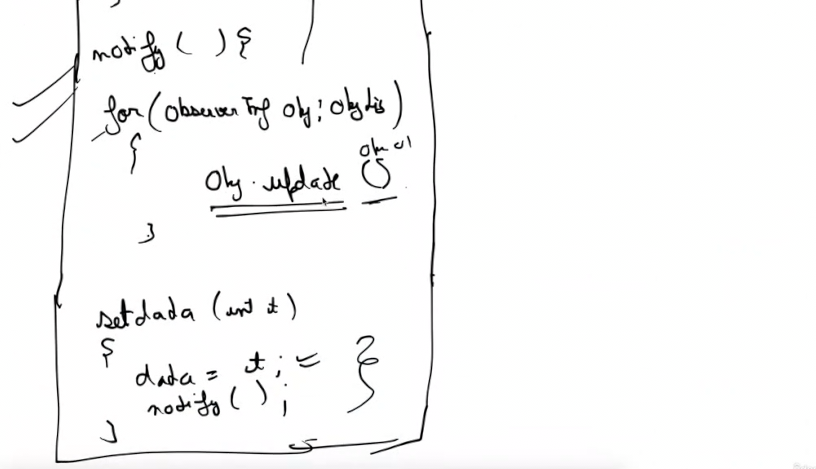 }
notify ( ) {
for (ObserverInf Obj ; Obj Lis)
{
Obj . update ()
}
setdada (int t)
{
dada = t ;
notify ( ) ;
}